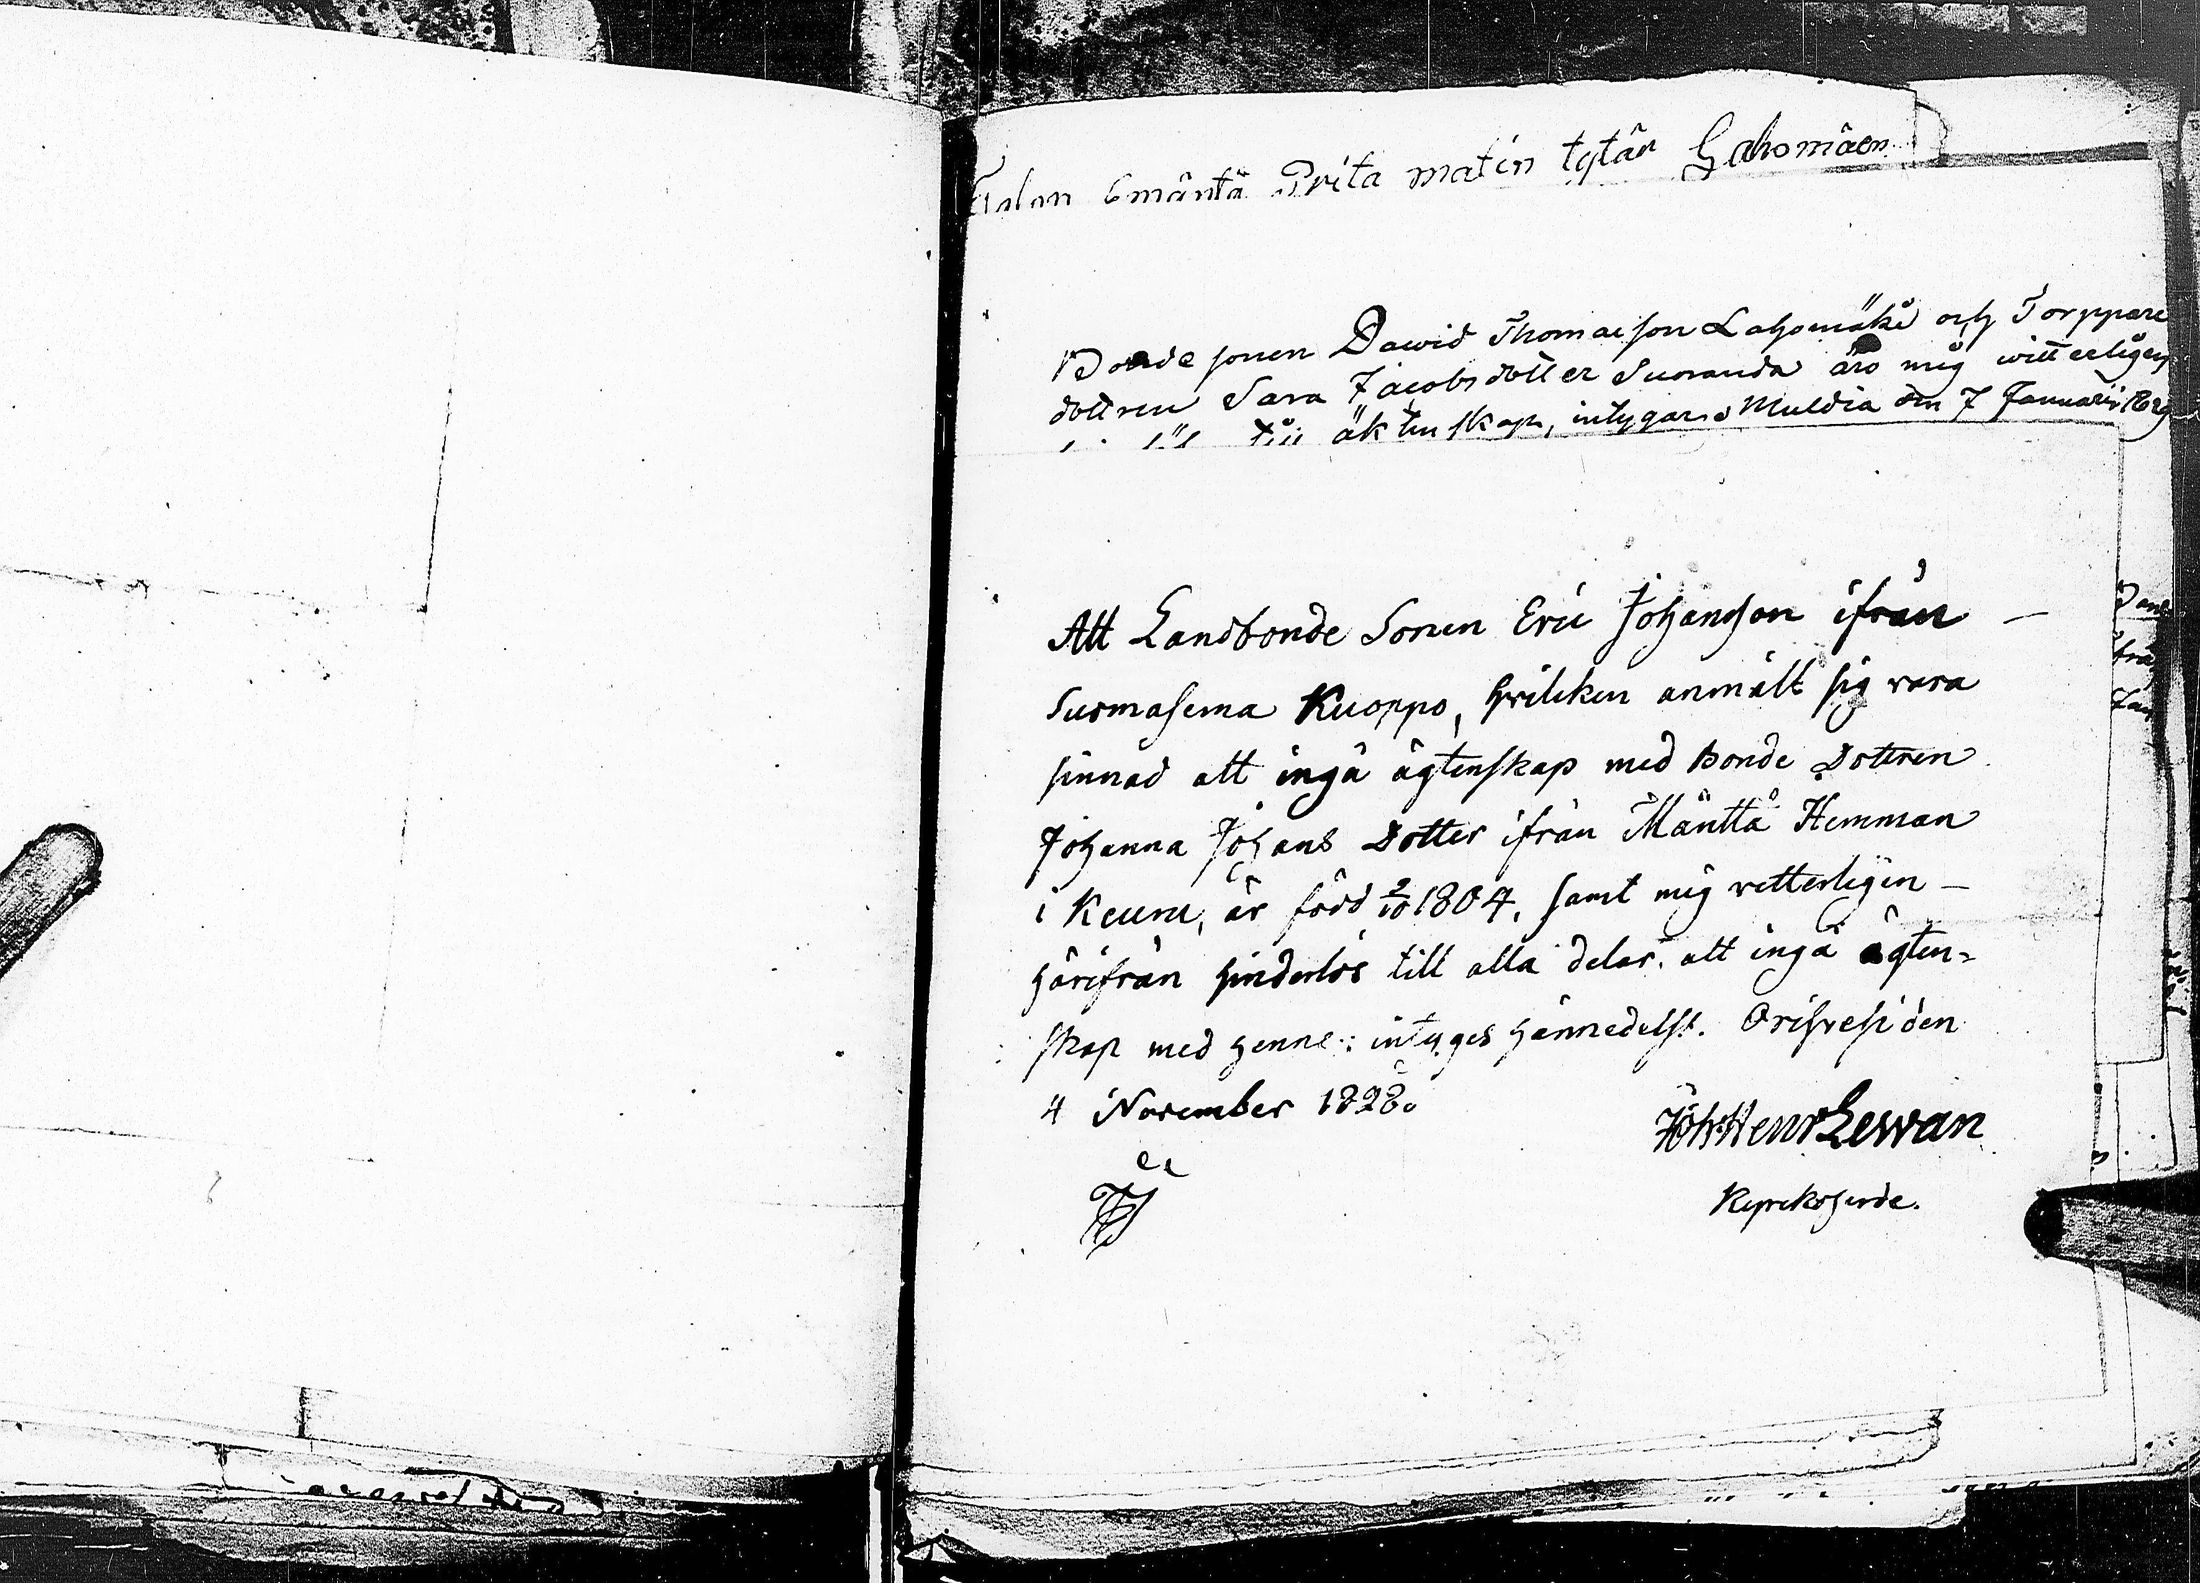 Talon Emäntä Prita matin tytär Lahomäen
Bonde sonen Dawid Thomasson Lahomäki och Torppare
dottren Sara Jacobsdotter Suoranda äro mig witterligen
till äktenskap, intygar. Muldia den 7 Januarii 1829
Att Landbonde Sonen Eric Johansson ifrån —
Suomasema Kuoppo, hvilcken anmält sig vara
sinnad att ingå ägtenskap med Bonde Dottren
Johanna Johans Dotter ifrån Mänttä Hemman
i Keuru, är född 2/10 1804, samt mig vetterligen —
härifrån hinderlös till alla delar, att ingå ägten=
skap med henne; intyges härmedelst. Orisvesi den
4 November 1828.
Joh: Henr Lewan
Kyrckoherde.